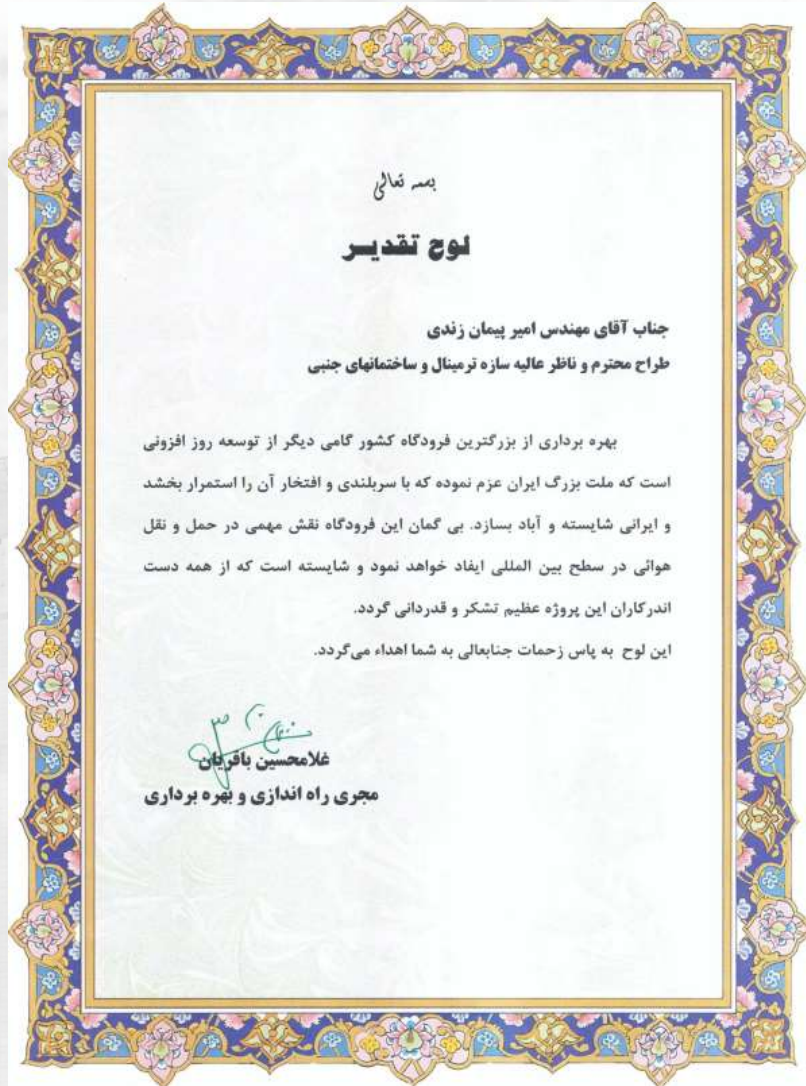 بسمه تعالی
لوح تقدیر
جناب آقای مهندس امیر پیمان زندی
طراح محترم و ناظر عالیه سازه ترمینال و ساختمانهای جنبی
بهره برداری از بزرگترین فرودگاه کشور گامی دیگر از توسعه روز افزونی
است که ملت بزرگ ایران عزم نموده که با سربلندی و افتخار آن را استمرار بخشد
و ایرانی شایسته و آباد بسازد. بی گمان این فرودگاه نقش مهمی در حمل و نقل
هوائی در سطح بین المللی ایفاد خواهد نمود و شایسته است که از همه دست
اندرکاران این پروژه عظیم تشکر و قدردانی گردد.
این لوح به پاس زحمات جنابعالی به شما اهداء می‌گردد.
غلامحسین باقریان
مجری راه اندازی و بهره برداری